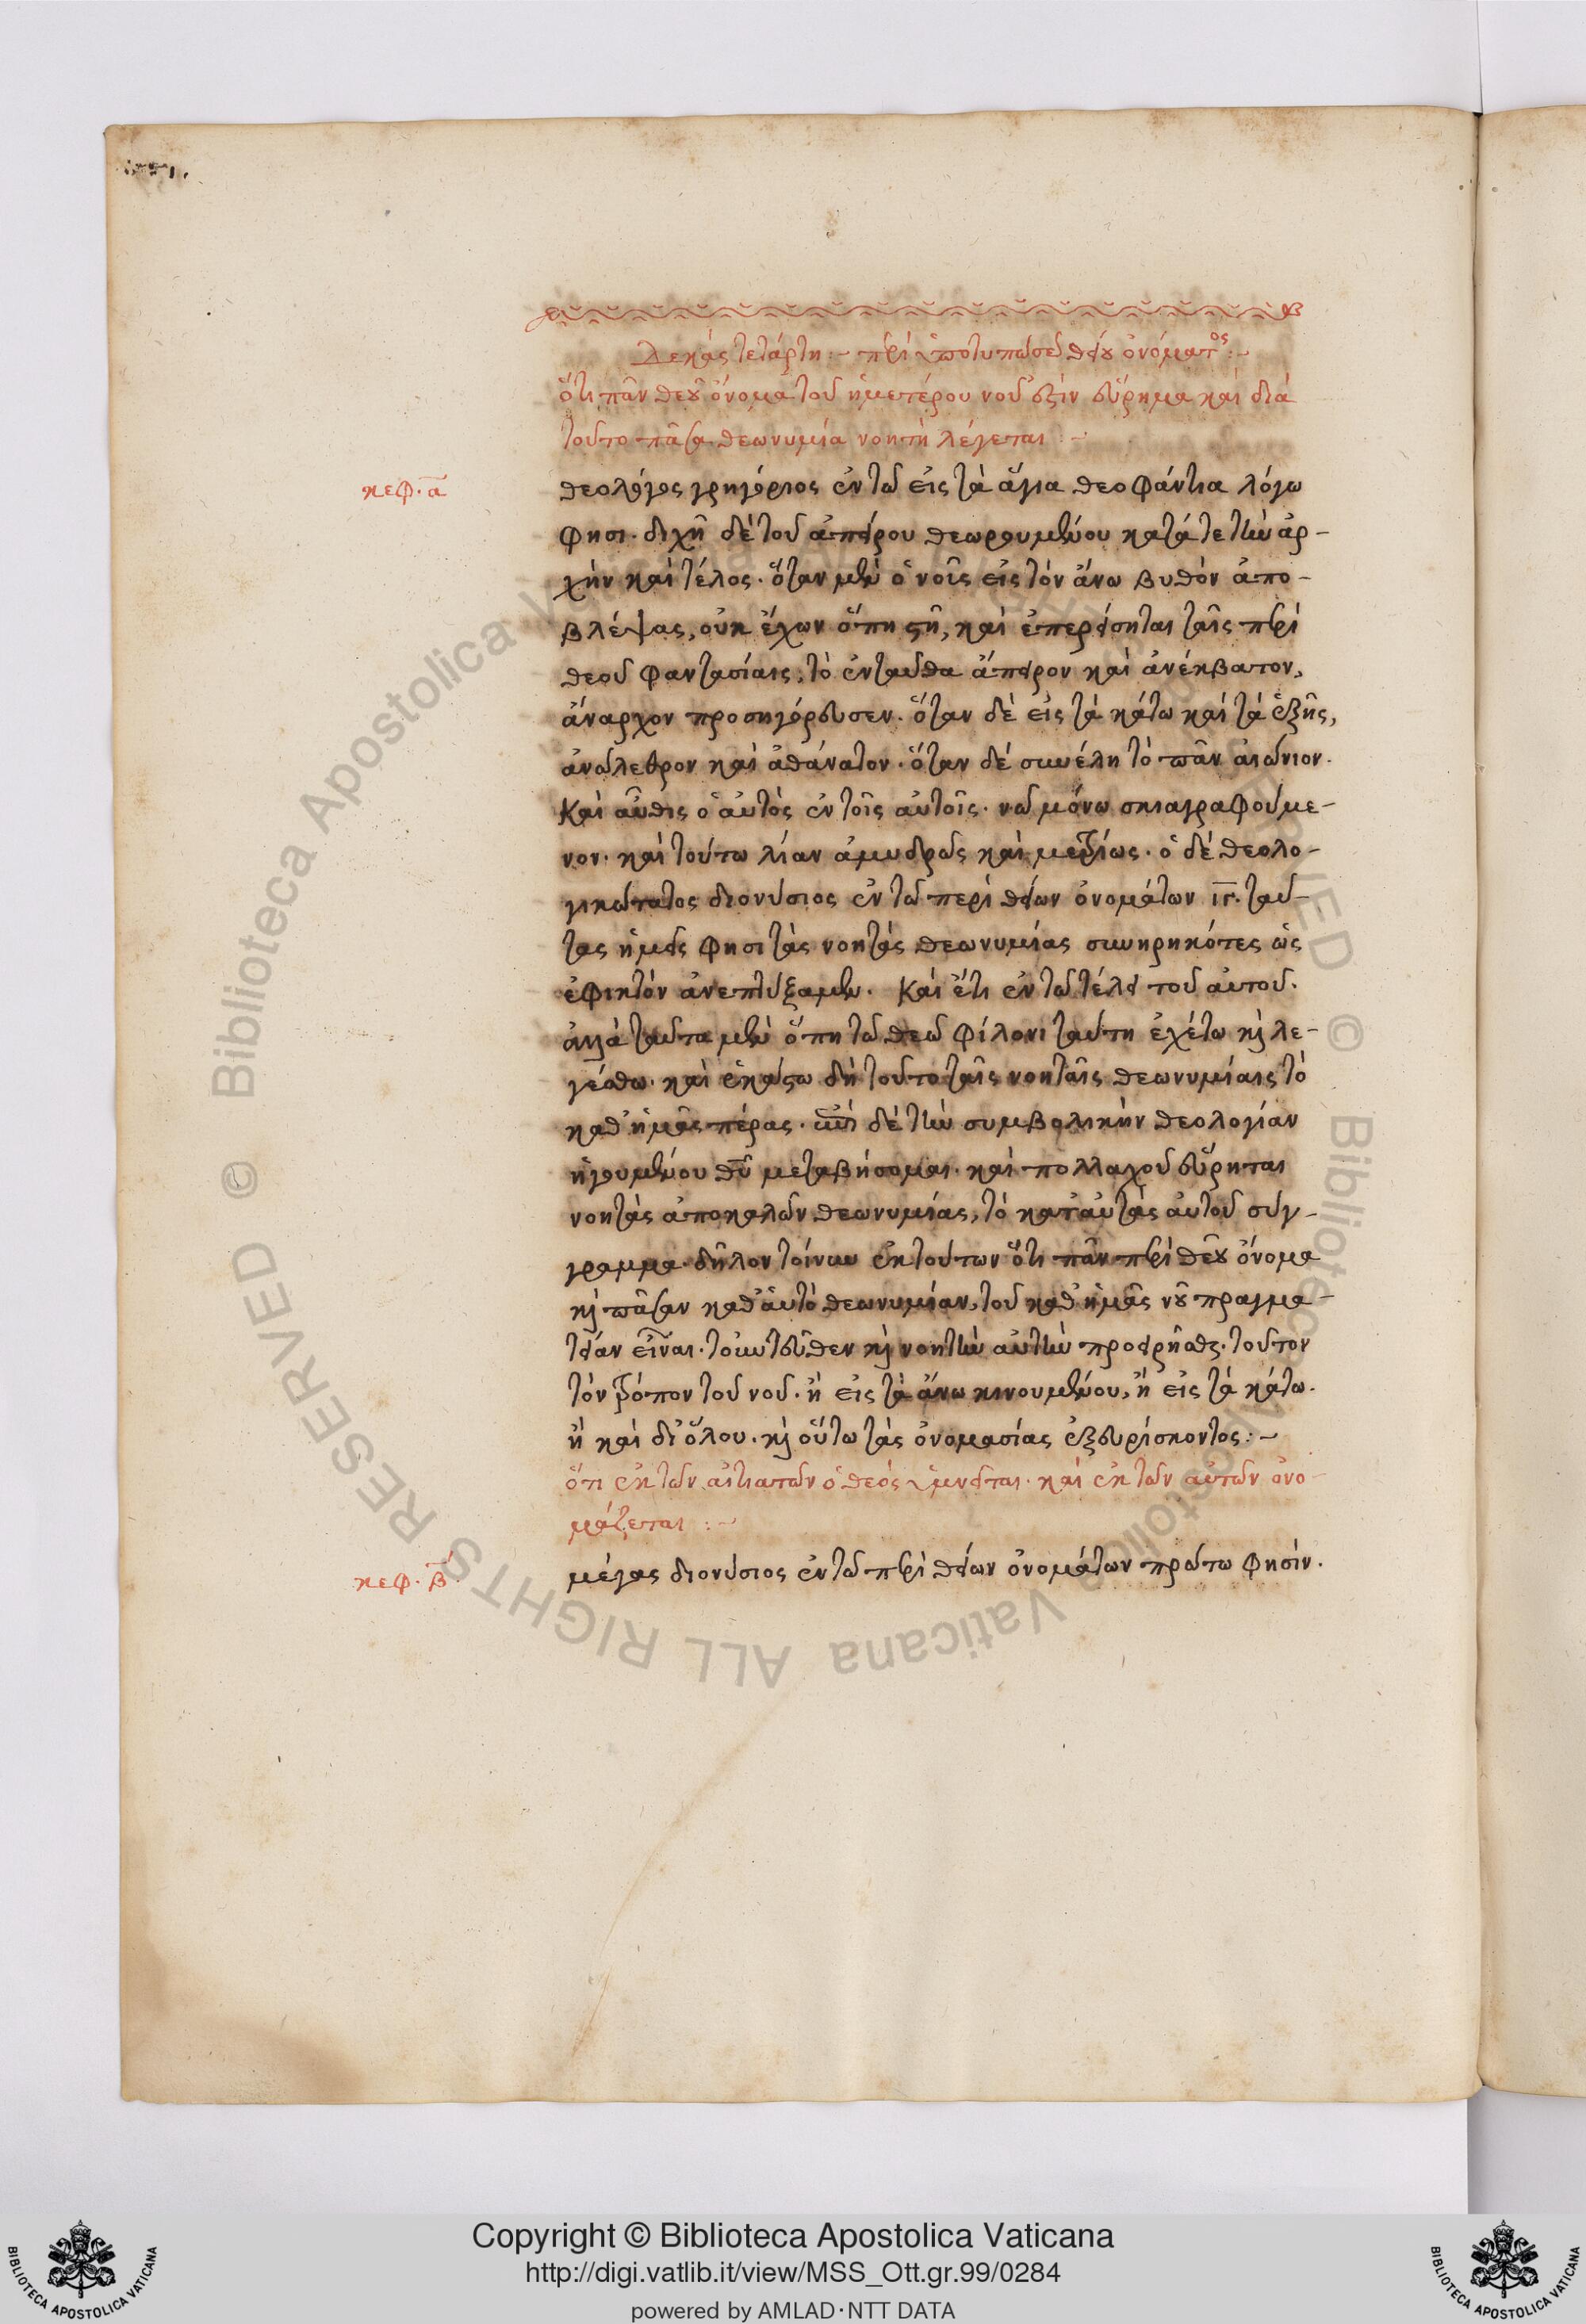 Δεκὰς τετάρτη :~ περὶ ὑποτυπώσεως θείου ὀνόματος :~
ὅτι πᾶν θεοῦ ὄνομα τοῦ ἡμετέρου νοῦ ἐστὶν εὕρημα καὶ διὰ
τοῦτο πᾶσα θεωνυμία νοητὴ λέγεται :~
κεφ. α
θεολόγος γρηγόριος ἐν τῶ εἰς τὰ ἅγια θεοφάντια λόγω
φησι. διχῆ δὲ τοῦ ἀπείρου θεωρουμένου κατά τε τὴν ἀρ-
χὴν καὶ τέλος. ὅταν μὲν ὁ νοῦς εἰς τὸν ἄνω βυθὸν ἀπο-
βλέψας, οὐκ ἔχων ὅπη στῆ, καὶ ἐπερείσηται ταῖς περὶ
θεοῦ φαντασίαις, τὸ ἐνταῦθα ἄπειρον καὶ ἀνέκβατον,
ἄναρχον προσηγόρευσεν. ὅταν δὲ εἰς τὰ κάτω καὶ τὰ ἑξῆς,
ἀνώλεθρον καὶ ἀθάνατον. ὅταν δὲ συνέλη τὸ πᾶν αἰώνιον.
Καὶ αὖθις ὁ αὐτὸς ἐν τοῖς αὐτοῖς. νῶ μόνω σκιαγραφούμε-
νον. καὶ τούτω λίαν ἀμυδρῶς καὶ μετρίως. ὁ δὲ θεολο-
γικώτατος διονύσιος ἐν τῶ περὶ θείων ὀνομάτων ιγ. ταύ-
τας ἡμεῖς φησι τὰς νοητὰς θεωνυμίας συνηρηκότες ὡς
ἐφικτὸν ἀνεπτύξαμεν. Καὶ ἔτι ἐν τῶ τέλει τοῦ αὐτοῦ.
ἀλλὰ ταῦτα μὲν ὅπη τῶ θεῶ φίλον ταύτη ἐχέτω κὶ λε-
γέσθω. καὶ ἑκάστω δὴ τοῦτο ταῖς νοηταῖς θεωνυμίαις τὸ
καθ' ἡμᾶς πέρας. ἐπὶ δὲ τὴν συμβολικὴν θεολογίαν
ἡγουμένου θυ μεταβήσομαι. καὶ πολλαχοῦ εὕρηται
νοητὰς ἀποκαλῶν θεωνυμίας, τὸ κατ' αὐτὰς αὐτοῦ σύγ-
γραμμα. δῆλον τοίνυν ἐκ τούτων ὅτι πᾶν περὶ θεοῦ ὄνομα
κὶ πᾶσαν καθ' αὐτὸ θεωνυμίαν, τοῦ καθ' ἡμᾶς νοῦ πραγμα-
τείαν εἶναι. τοὐντεῦθεν κὶ νοητὴν αὐτὴν προσειρῆσθαι. τοῦτον
τὸν τρόπον τοῦ νοῦ. ἢ εἰς τὰ ἄνω κινουμένου, ἢ εἰς τὰ κάτω.
ἢ καὶ δι' ὅλου. κὶ οὕτω τὰς ὀνομασίας ἐξευρίσκοντος :~
ὅτι ἐκ τῶν αἰτιατῶν ὁ θεὸς ὑμνεῖται. καὶ ἐκ τῶν αὐτῶν ὀνο-
μάζεται :~
κεφ. β
μέγας διονύσιος ἐν τῶ περὶ θείων ὀνομάτων πρώτω φησίν.
© Biblioteca Apostolica Vaticana ALL RIGHTS RESERVED
Copyright © Biblioteca Apostolica Vaticana
http://digi.vatlib.it/view/MSS_Ott.gr.99/0284
powered by AMLAD·NTT DATA
BIBLIOTECA APOSTOLICA VATICANA
BIBLIOTECA APOSTOLICA VATICANA